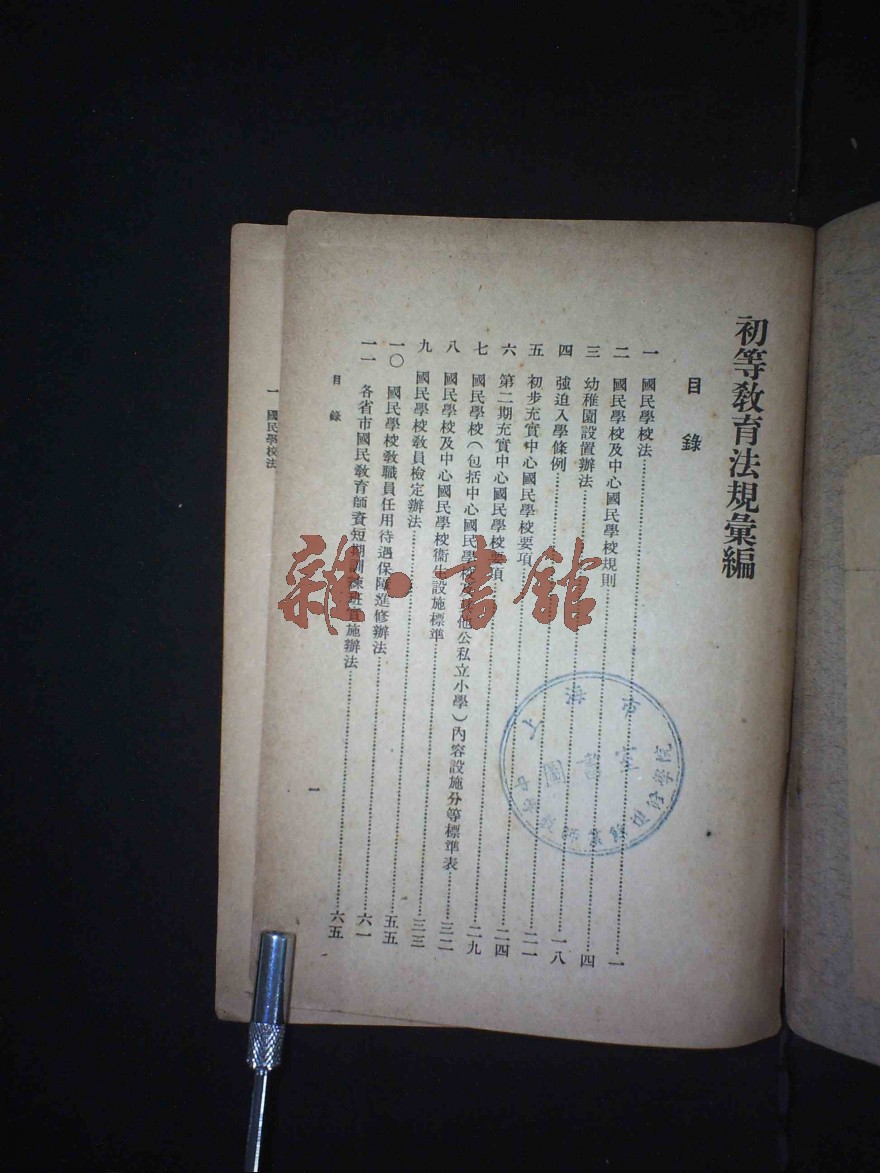 初等教育法規彙編
目錄
一 國民學校法……一
二 國民學校及中心國民學校規則……四
三 幼稚園設置辦法……一八
四 強迫入學條例……二一
五 初步充實中心國民學校要項……二四
六 第二期充實中心國民學校要項……二九
七 國民學校(包括中心國民學校及其他公私立小學)內容設施分等標準表……三二
八 國民學校及中心國民學校衞生設施標準……三三
九 國民學校教員檢定辦法……五五
一〇 國民學校教職員任用待遇保障進修辦法……六一
一一 各省市國民教育師資短期訓練班實施辦法……六五
目錄
一
一 國民學校法
雜·書館
上海市
圖書室